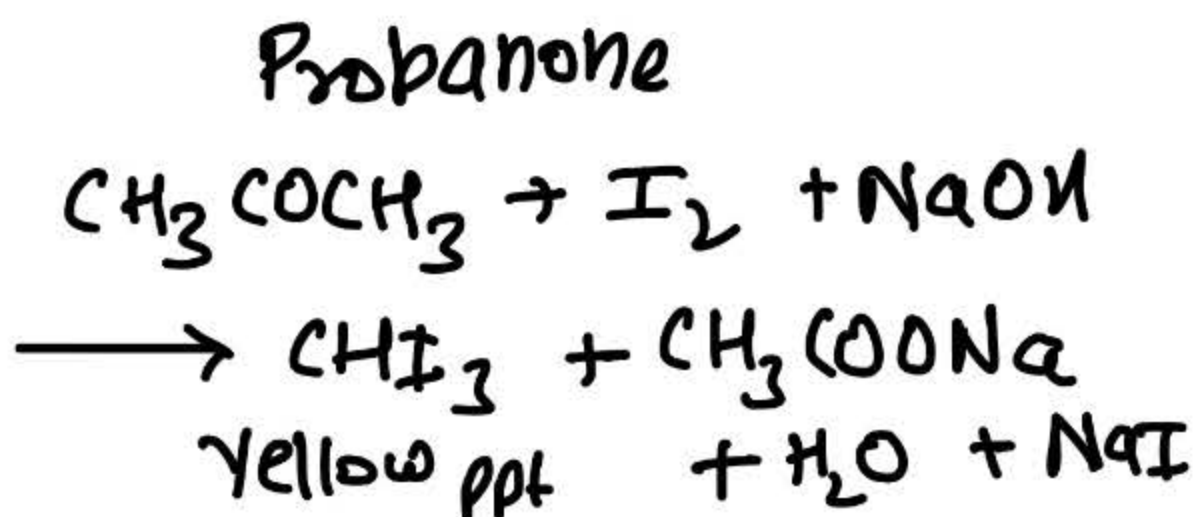 Probanone
CH₃COCH₃ + I₂ + NaOH
⟶ CHI₃ + CH₃COONa
Yellow ppt + H₂O + NaI